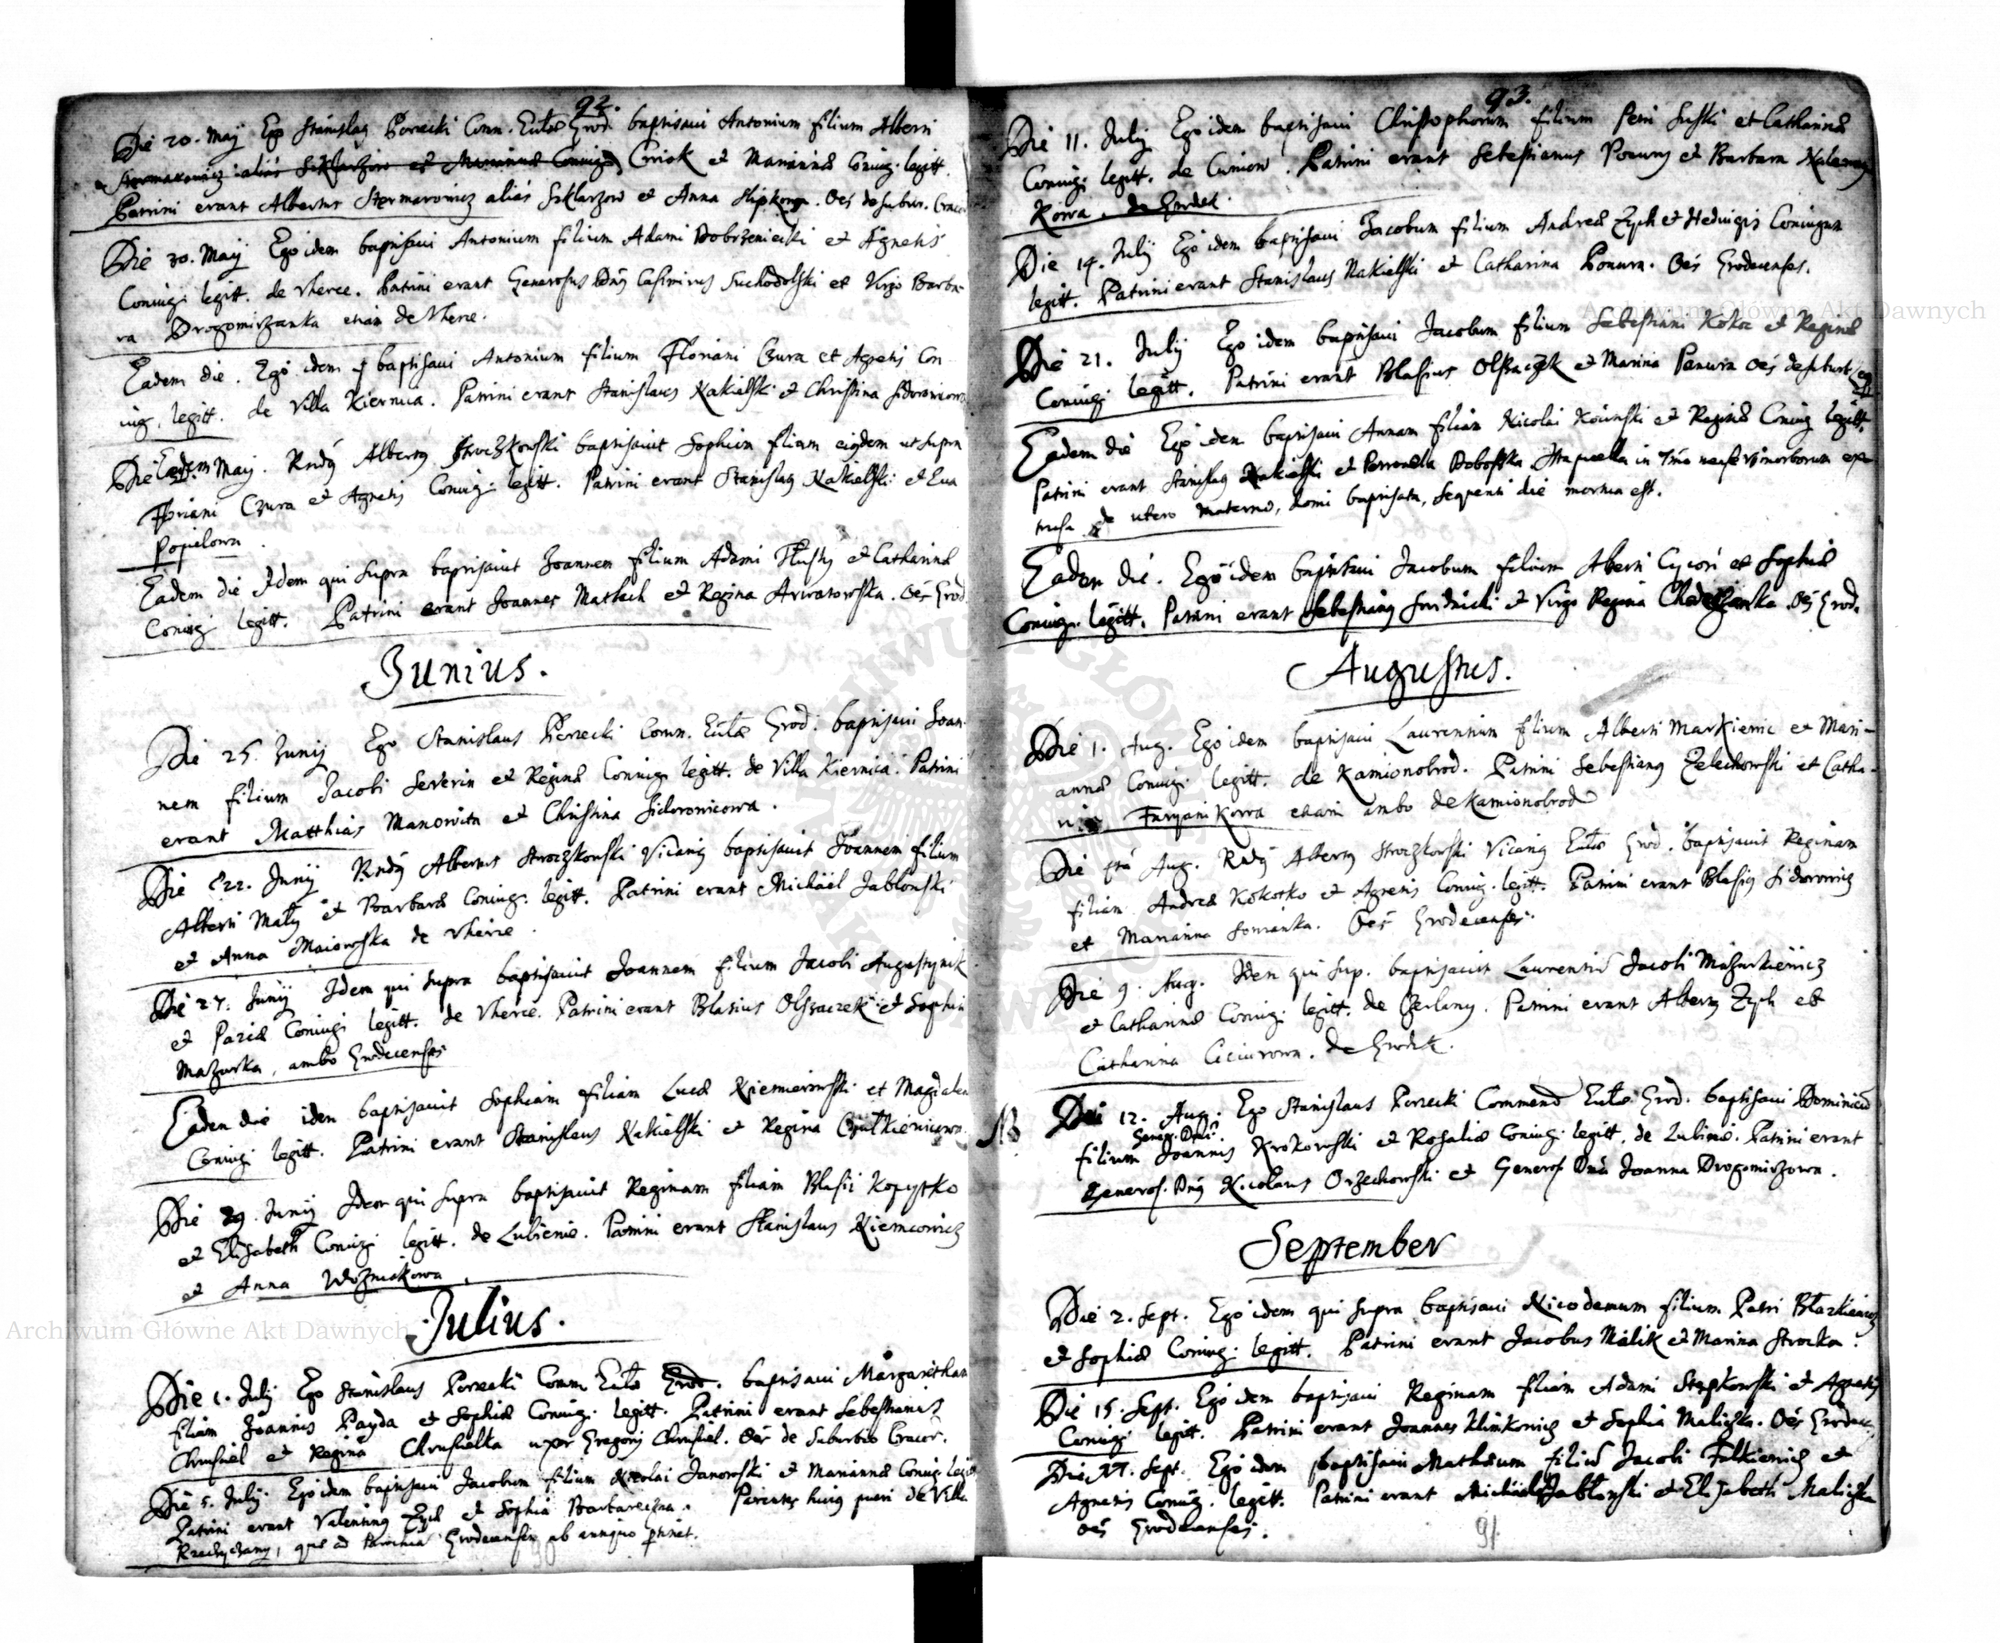 92.
Die 20. Maij Ego Stanislaus Porzecki Comm. Eccl. Grod. baptisavi Antonium filium Alberti
alias et Mariannæ Coniug. Criok et Mariannæ Coniug. legitt.
Patrini erant Albertus alias Szklarzow et Anna Oes de suburb.
Die 30. Maij Ego idem baptisavi Antonium filium Adami Dobrzeniecki et Agnetis
Coniug. legitt. de Vherce. Patrini erant Generosus Dnus Casimirus Suchodolski et Virgo Barba-
ra Drogomirzanka etiam de Vherce.
Eadem die. Ego idem baptisavi Antonium filium Floriani Czura et Agnetis Con
iug. legitt. de Villa Kiernica. Patrini erant Stanislaus Nakielski et Christina Sidorowiczowa
Die Eadem Maij. Rndus Albertus Stroczkowski baptisavit Sophiam filiam eiusdem ut supra
Floriani Czura et Agnetis Coniug. legitt. Patrini erant Stanislaus Nakielski et Eva
Popielowa
Eadem die Idem qui supra baptisavit Joannem filium Adami Tlusty et Catharinæ
Coniug. legitt. Patrini erant Joannes Matlach et Regina Oes Grod.
Junius.
Die 25. Junij Ego Stanislaus Porzecki Comm. Eccl. Grod. baptisavi Joan-
nem filium Jacobi Severin et Reginæ Coniug. legitt. de Villa Kiernica. Patrini
erant Matthias Manowita et Christina Sidorowicowa.
Die 22. Junij Rndus Albertus Stroczkowski Vicarius baptisavit Joannem filium
Alberti Mały et Barbaræ Coniug. legitt. Patrini erant Michaël Jablonski
et Anna Maiowska de Vherce.
Die 27. Junij Idem qui supra baptisavit Joannem filium Jacobi Augustynik
et Coniug. legitt. de Vherce. Patrini erant Blasius Olszaczek et Sophia
Mazurka, ambo Grodecenses
Eadem die idem baptisavit Sophiam filiam Lucæ Niemierowski et Magdalen
Coniug. legitt. Patrini erant Stanislaus Nakielski et Regina
Die 29. Junij Idem qui supra baptisavit Reginam filiam Blasii Kopystko
et Elisabeth Coniug. legitt. de Lubienie. Patrini erant Stanislaus Niemcowicz
et Anna Wozniakowa.
Julius.
Die 1. Julij Ego Stanislaus Porzecki Comm. Eccl. Grod. baptisavi Margaretham
filiam Joannis Payda et Sophiæ Coniug. legitt. Patrini erant Sebestianus
Chrusciel et Regina Chruscielka uxor Gregorij Chrusciel. Oes de Suburbio Cracov.
Die 5. Julij Ego idem baptisavi Jacobum filium Nicolai Janowski et Mariannæ Coniug. legitt
Patrini erant Valentinus Zych et Sophia Parentes huius pueri de Villa
quæ ad Parochiam Grodecensem ab antiquo ptinet.
93.
Die 11. Julij Ego idem baptisavi Christophorum filium Petri Suski et Catharinæ
Coniug. legitt. de Cuniow. Patrini erant Sebestianus et Barbara
kowa. de Grodek.
Die 14. Julij Ego idem baptisavi Jacobum filium Andreæ Zych et Hedvigis Coniugum
legitt. Patrini erant Stanislaus Nakielski et Catharina Ponura. Oes Grodecenses.
Die 21. Julij Ego idem baptisavi Jacobum filium Sebestiani Kokot et Reginæ
Coniug. legitt. Patrini erant Blasius Olszaczek et Marina Ponura Oes de suburb
Eadem die Ego idem baptisavi Annam filiam Nicolai et Reginæ Coniug. legitt.
Patrini erant Stanislaus Nakielski et Petronella in morborum
de utero materno, domi baptisata, sequenti die mortua est.
Eadem die. Ego idem baptisavi Jacobum filium Alberti Cycon et Sophiæ
Coniug. legitt. Patrini erant Sebestianus Swidnicki et Virgo Regina Oes Grod.
Augustus.
Die 1. Aug. Ego idem baptisavi Laurentium filium Alberti Markiewic et Mari-
annæ Coniug. legitt. de Kamionobrod. Patrini Sebestianus Zelechowski et Catha-
rina etiam ambo de Kamionobrod
Die Aug. Rndus Albertus Stroczkowski Vicarius Eccl. Grod. baptisavit Reginam
filiam Andreæ Kokotko et Agnetis Coniug. legitt. Patrini erant Blasius Sidorowicz
et Marianna Oes Grodecenses.
Die 9. Aug. Idem qui sup. baptisavit Laurentiũ Jacobi Mazurkiewicz
et Catharinæ Coniug. legitt. de Patrini erant Albertus Zych et
Catharina de Grodek.
NB Die 12. Aug. Ego Stanislaus Porzecki Commend. Eccl. Grod. baptisavi Dominicũ
Gener. Dni
filium Joannis Krokowski et Rosaliæ Coniug. legitt. de Lubinie. Patrini erant
Generos. Dnus Nicolaus Orzechowski et Generos. Dna Joanna Drogomirzowa.
September
Die 2. Sept. Ego idem qui supra baptisavi Nicodemum filium Petri Blazkiewicz
et Sophiæ Coniug. legitt. Patrini erant Jacobus Malik et Marina Strocka.
Die 15. Sept. Ego idem baptisavi Reginam filiam Adami Stepkowski et Agnetis
Coniug. legitt. Patrini erant Joannes Klimkowicz et Sophia Maliczka. Oes Grodec.
Die Sept. Ego idem baptisavi Mathæum filiũ Jacobi Falkiewicz et
Agnetis Coniug. legitt. Patrini erant Michael Jablonski et Elisabeth Maliczka
oes Grodecenses.
91
Archiwum Główne Akt Dawnych
Archiwum Główne Akt Dawnych